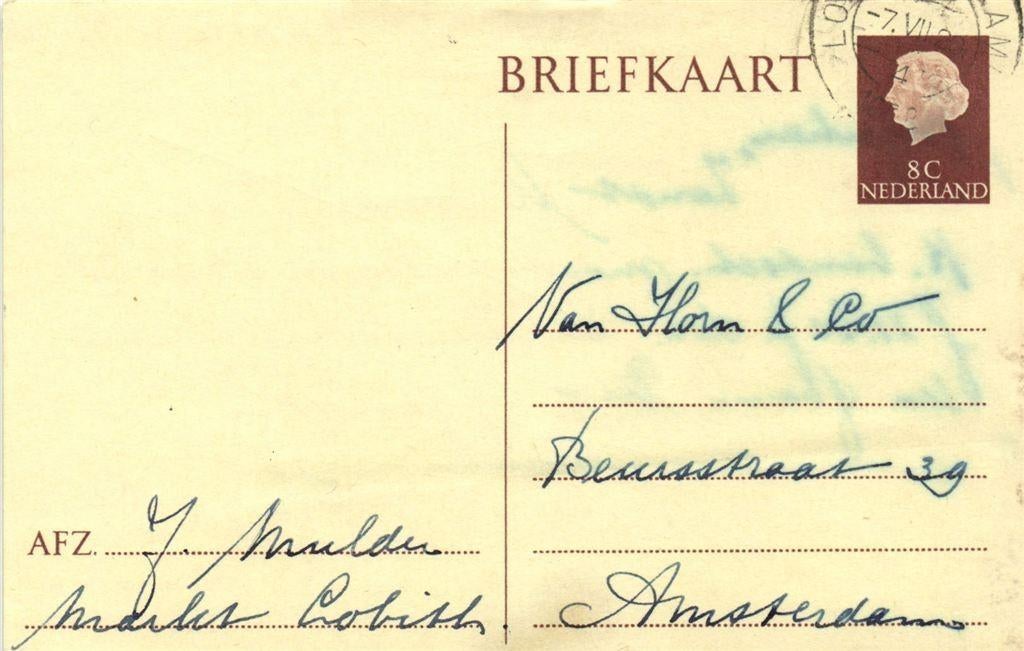 BRIEFKAART
-7.VII
8 C
NEDERLAND
Van Horn & Co
Beursstraat 39
Amsterdam
AFZ. J. Mulder
Markt Lobith